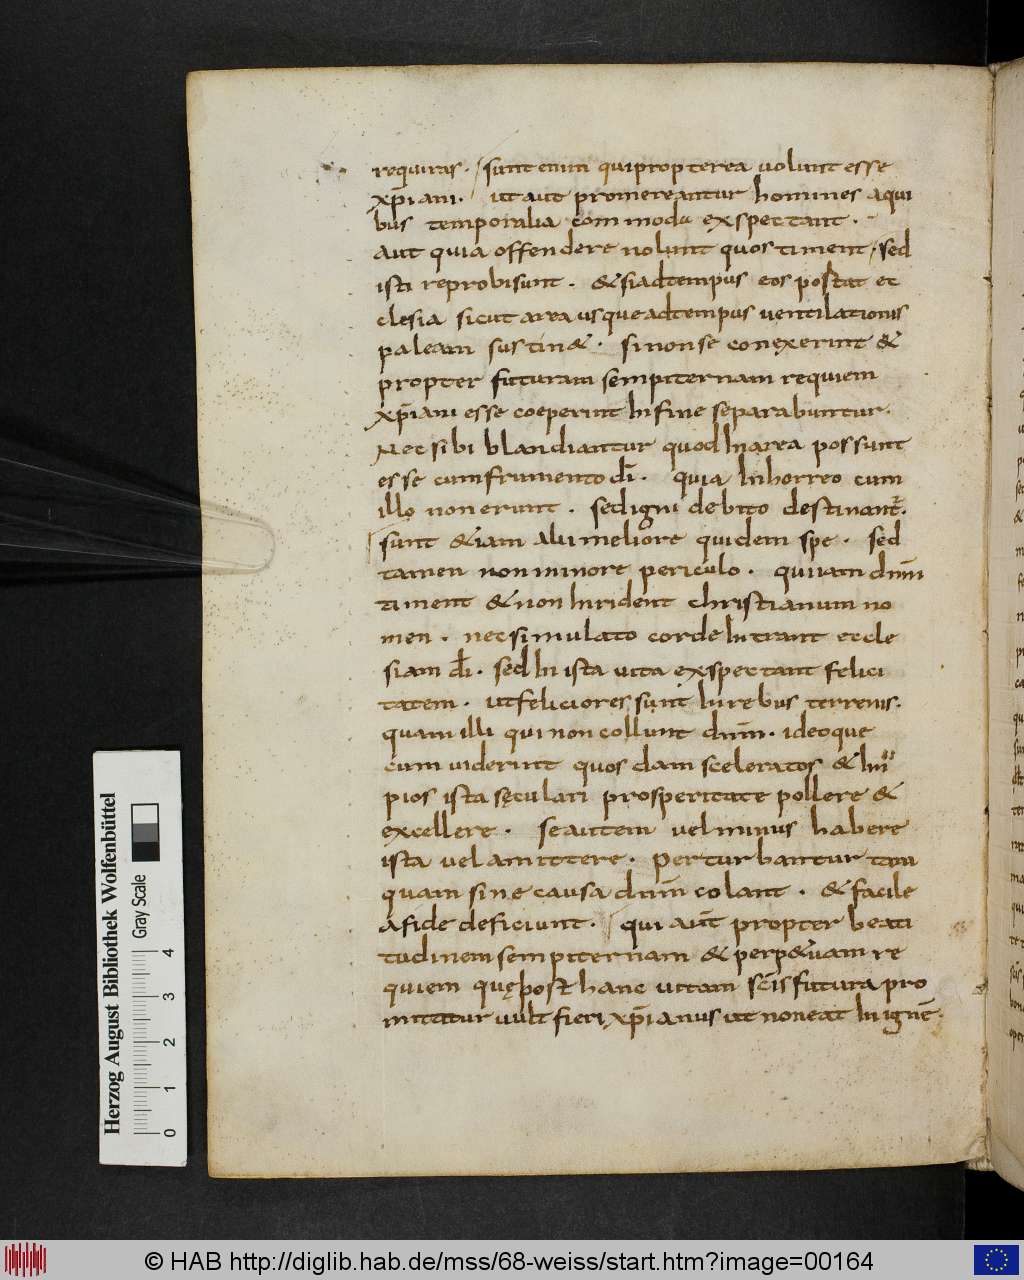 requiras. sunt enim qui propterea volunt esse
xp̄iani. ut aut promereantur homines a qui
bus temporalia commoda exspectant.
aut quia offendere nolunt quos timent, sed
isti reprobi sunt. & si ad tempus eos portat ec
clesia sicut area usque ad tempus ventilationis
paleam sustin&. si non se correxerint &
propter futuram sempiternam requiem
xp̄iani esse coeperint In fine separabuntur.
Nec sibi blandiantur quod In area possunt
esse cum frumento dī. quia In horreo cum
illo non erunt. sed igni debito destinant̄.
sunt &iam alii meliore quidem spe. sed
tamen non minore periculo. qui iam dnm̄
timent & non Inrident christianum no
men. nec simulato corde Intrant eccle
siam dī. sed In ista vita exspectant felici
tatem. ut feliciores sunt In rebus terrenis.
quam illi qui non collunt dnm̄. ideoque
cum viderint quos dam sceleratos & Im
pios ista sęculari prosperitate pollere &
excellere. se autem vel minus habere
ista vel amittere. perturbantur tam
quam sine causa dnm̄ colant. & facile
a fide deficiunt. qui aut̄ propter beati
tudinem sempiternam & perp&uam re
quiem quę post hanc vitam sc̄is futura pro
mittitur vult fieri xp̄ianus ut non eat In ignē.
Herzog August Bibliothek Wolfenbüttel
Gray Scale
0 1 2 3 4
© HAB http://diglib.hab.de/mss/68-weiss/start.htm?image=00164